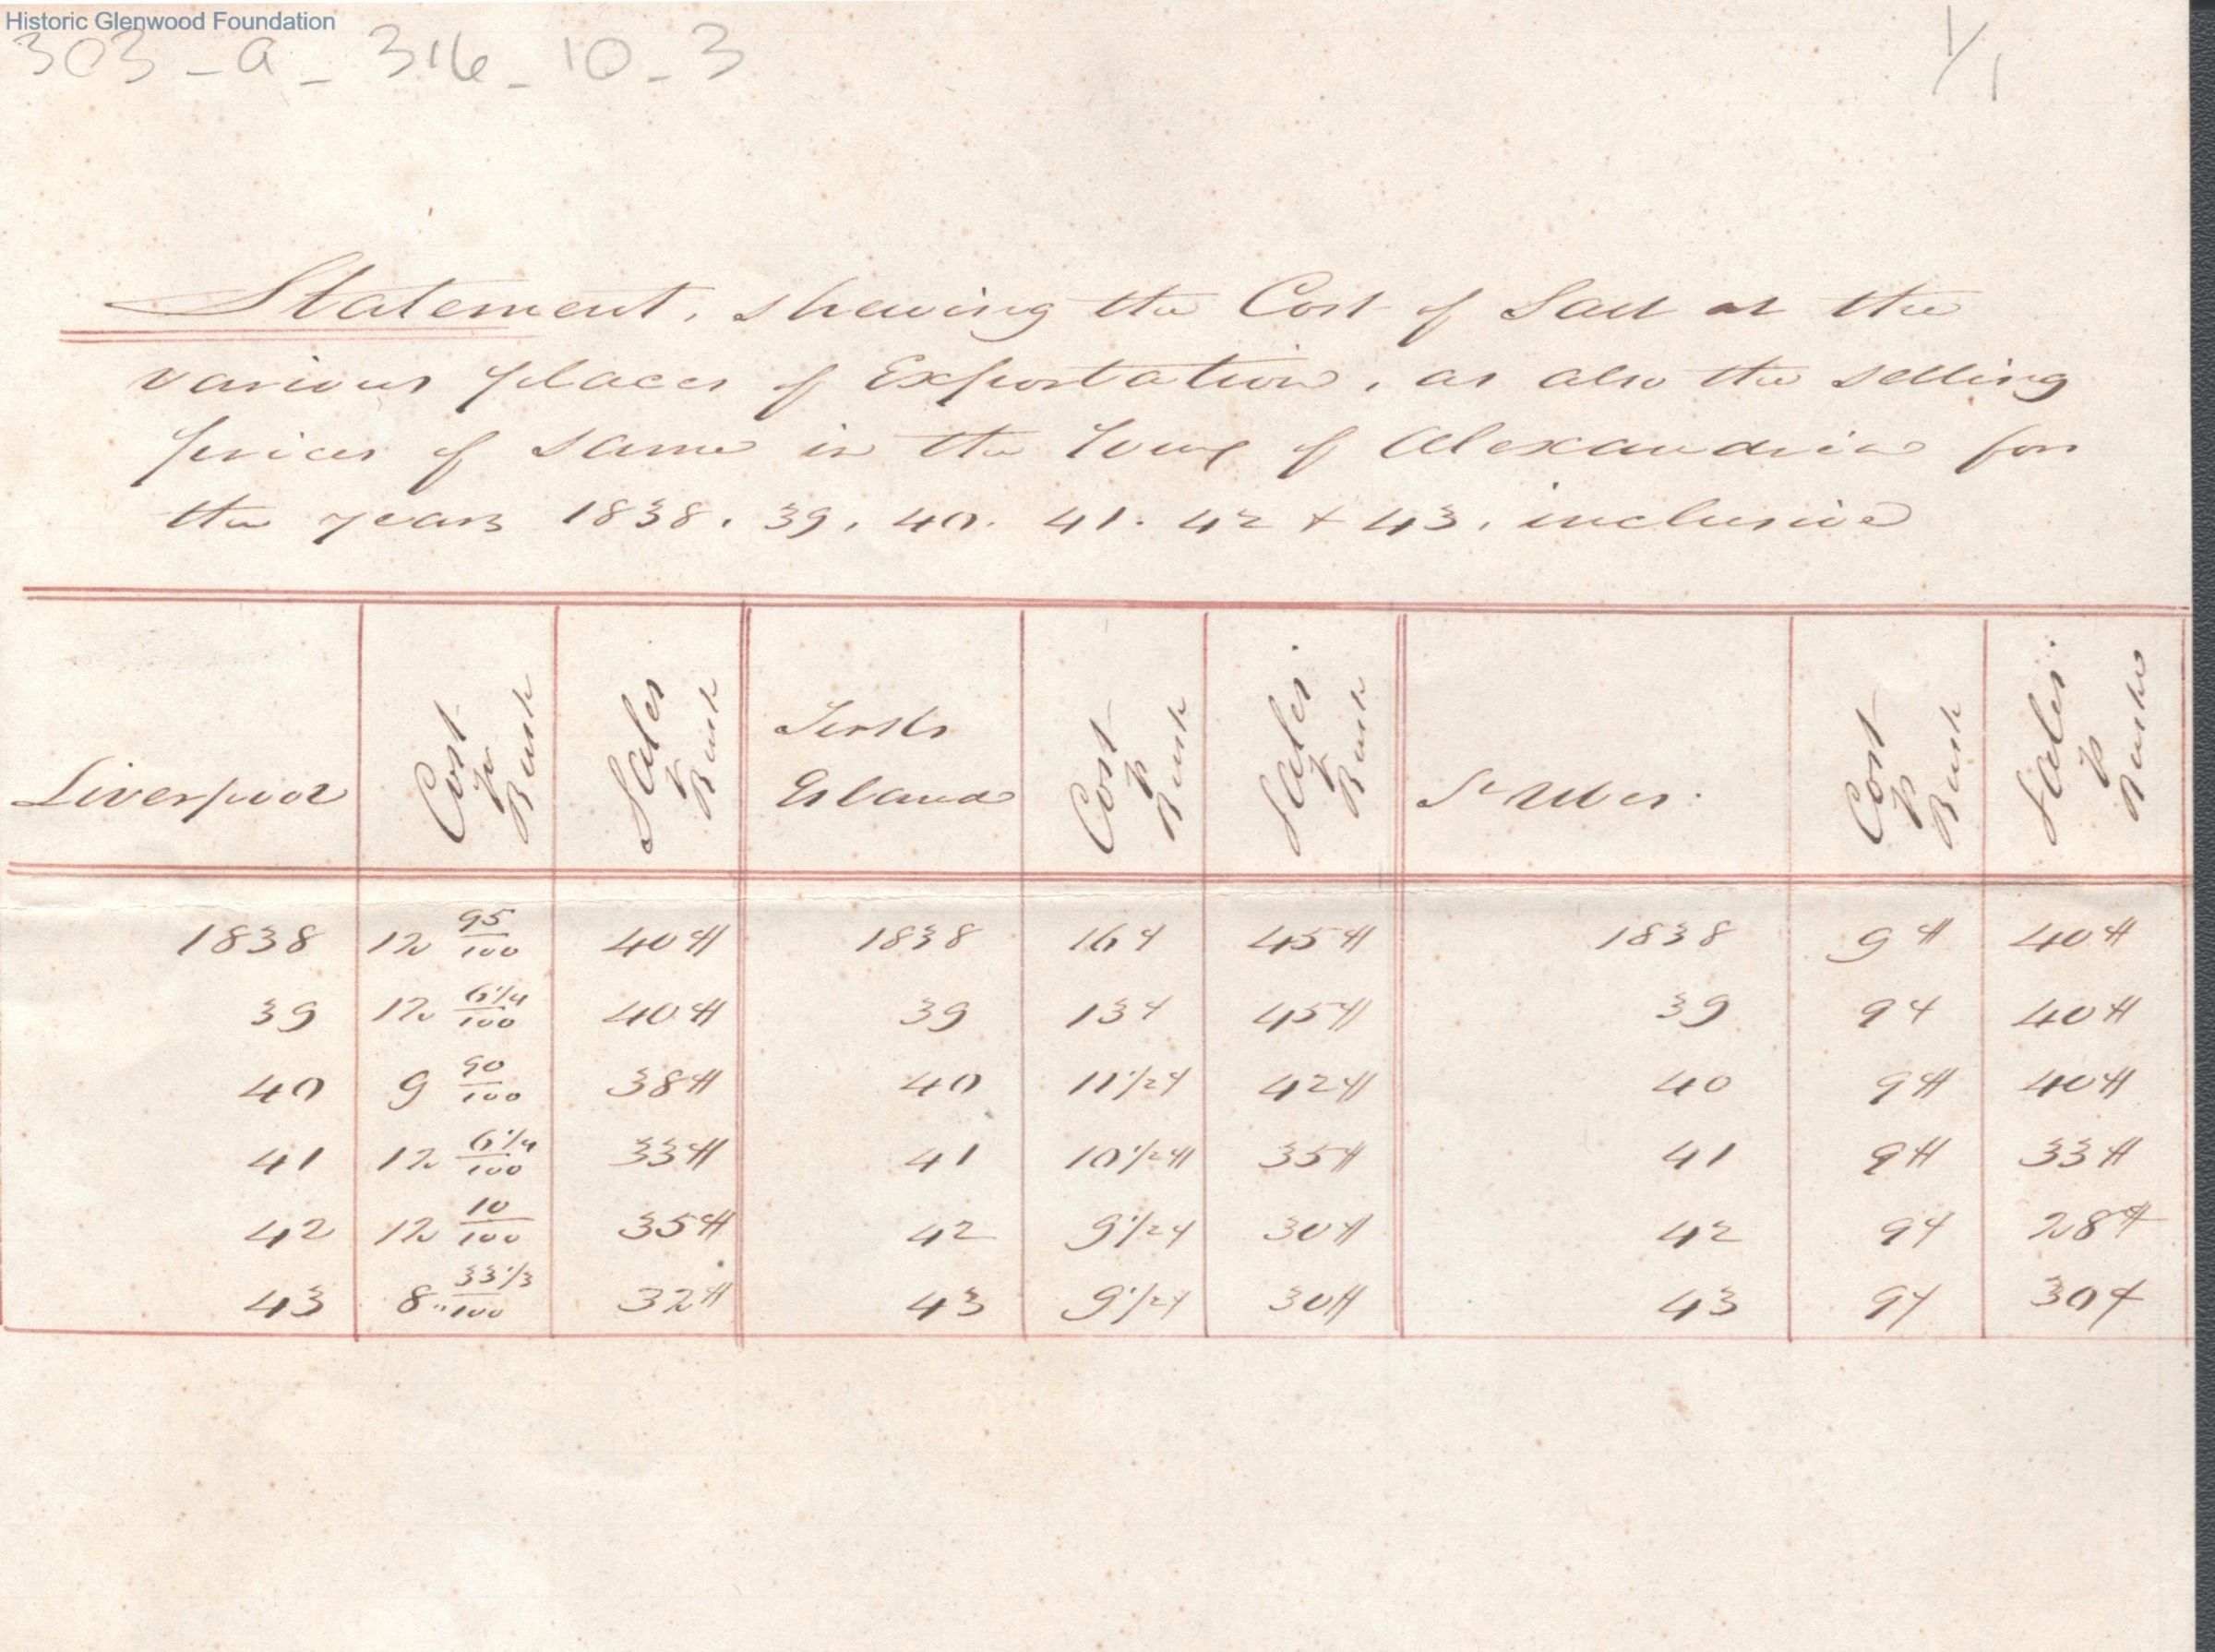 Historic Glenwood Foundation
303-a-316-10-3 1/1
Statement, shewing the Cost of Salt at the
various places of Exportation, as also the selling
prices of same in the Town of Alexandria for
the years 1838. 39. 40. 41. 42 & 43. inclusive
Liverpool | Cost p Bush | Sales p Bush | Turks Island | Cost p Bush | Sales p Bush | St Ubes. | Cost p Bush | Sales p Bushe
1838 | 12 95/100 | 40 ¢ | 1838 | 16 ¢ | 45 ¢ | 1838 | 9 ¢ | 40 ¢
39 | 12 6 1/4/100 | 40 ¢ | 39 | 13 ¢ | 45 ¢ | 39 | 9 ¢ | 40 ¢
40 | 9 90/100 | 38 ¢ | 40 | 11 1/2 ¢ | 42 ¢ | 40 | 9 ¢ | 40 ¢
41 | 12 6 1/4/100 | 33 ¢ | 41 | 10 1/2 ¢ | 35 ¢ | 41 | 9 ¢ | 33 ¢
42 | 12 10/100 | 35 ¢ | 42 | 9 1/2 ¢ | 30 ¢ | 42 | 9 ¢ | 28 ¢
43 | 8 " 33 1/3/100 | 32 ¢ | 43 | 9 1/2 ¢ | 30 ¢ | 43 | 9 ¢ | 30 ¢